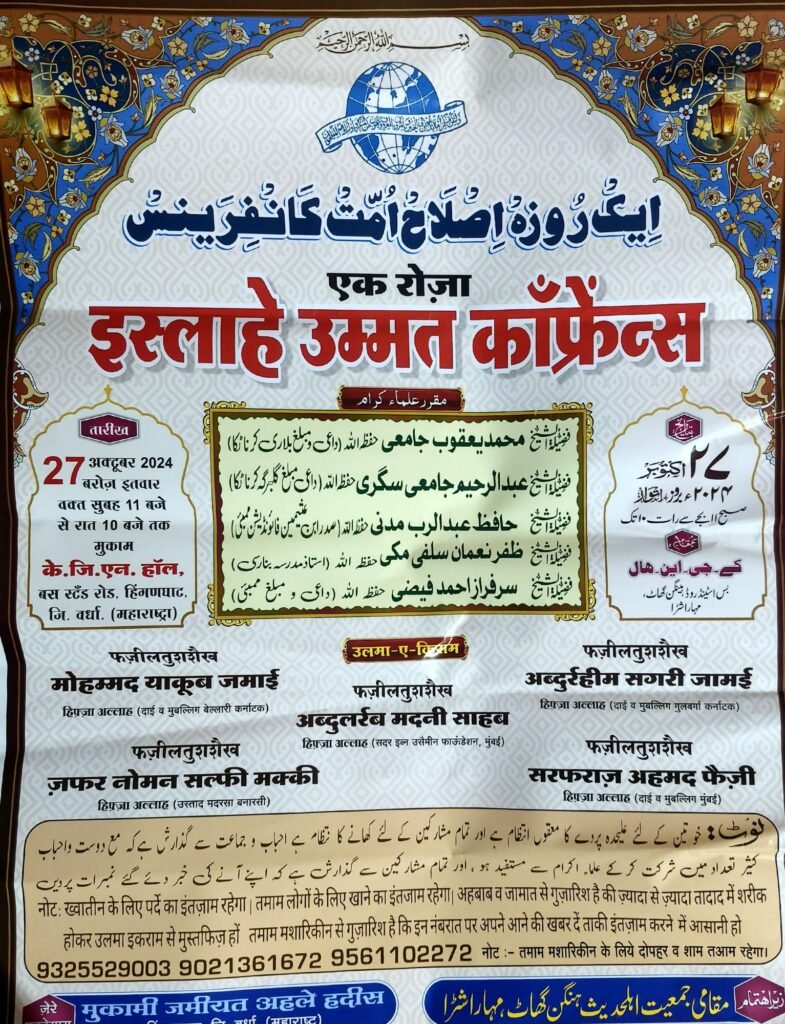 بسم اللہ الرحمن الرحیم
ایک روزہ اِصلاح اُمّت کانفرینس
एक रोज़ा
इस्लाहे उम्मत काँफ्रेंन्स
مقرر علماء کرام
فضیلۃ الشیخ محمد یعقوب جامعی حفظہ اللہ (داعی و مبلغ بلاری کرناٹکا)
فضیلۃ الشیخ عبدالرحیم جامعی سگری حفظہ اللہ (داعی و مبلغ گلبرگہ کرناٹکا)
فضیلۃ الشیخ حافظ عبدالرب مدنی حفظہ اللہ (صدر ابن عثیمین فاؤنڈیشن ممبئی)
فضیلۃ الشیخ ظفر نعمان سلفی مکی حفظہ اللہ (استاذ مدرسہ بنارس)
فضیلۃ الشیخ سرفراز احمد فیضی حفظہ اللہ (داعی و مبلغ ممبئی)
بتاریخ
۲۷ اکتوبر
۲۰۲۴ء بروز اتوار
صبح ۱۱ بجے سے رات ۱۰ تک
بمقام
کے۔جی۔این۔ھال
بس اسٹینڈ روڈ ہنگن گھاٹ،
مہاراشٹرا
तारीख
27 अक्टूबर 2024
बरोज़ इतवार
वक्त सुबह 11 बजे
से रात 10 बजे तक
मुकाम
के.जि.एन. हॉल,
बस स्टँड रोड, हिंगणघाट,
जि. वर्धा. (महाराष्ट्रा)
उलमा-ए-किराम
फज़ीलतुशशैख
मोहम्मद याकूब जमाई
हिफ़्ज़ा अल्लाह (दाई व मुबल्लिग बेल्लारी कर्नाटक)
फज़ीलतुशशैख
अब्दुलर्रब मदनी साहब
हिफ़्ज़ा अल्लाह (सदर इब्न उसैमीन फाऊंडेशन, मुंबई)
फज़ीलतुशशैख
अब्दुर्रहीम सगरी जामई
हिफ़्ज़ा अल्लाह (दाई व मुबल्लिग गुलबर्गा कर्नाटक)
फज़ीलतुशशैख
ज़फर नोमन सल्फी मक्की
हिफ़्ज़ा अल्लाह (उस्ताद मदरसा बनारसी)
फज़ीलतुशशैख
सरफराज़ अहमद फैज़ी
हिफ़्ज़ा अल्लाह (दाई व मुबल्लिग मुंबई)
نوٹ: خوتین کے لئے علیحدہ پردے کا معقول انتظام ہے اور تمام مشارکین کے لئے کھانے کا نظام ہے احباب و جماعت سے گذارش ہے کہ مع دوست واحباب
کثیر تعداد میں شرکت کر کے علماء اکرام سے مستفید ہو، اور تمام مشارکین سے گذارش ہے کہ اپنے آنے کی خبر دئے گئے نمبرات پر دیں
नोट: ख्वातीन के लिए पर्दे का इंतज़ाम रहेगा। तमाम लोगों के लिए खाने का इंतजाम रहेगा। अहबाब व जामात से गुज़ारिश है की ज़्यादा से ज़्यादा तादाद में शरीक
होकर उलमा इकराम से मुस्तफिज़ हों तमाम मशारिकीन से गुज़ारिश है कि इन नंबरात पर अपने आने की खबर दें ताकी इंतज़ाम करने में आसानी हो
9325529003 9021361672 9561102272 नोट :- तमाम मशारिकीन के लिये दोपहर व शाम तआम रहेगा।
زیر اہتمام
مقامی جمعیت اہلحدیث ہنگن گھاٹ، مہاراشٹرا
ज़ेरे
मुकामी जमीयत अहले हदीस